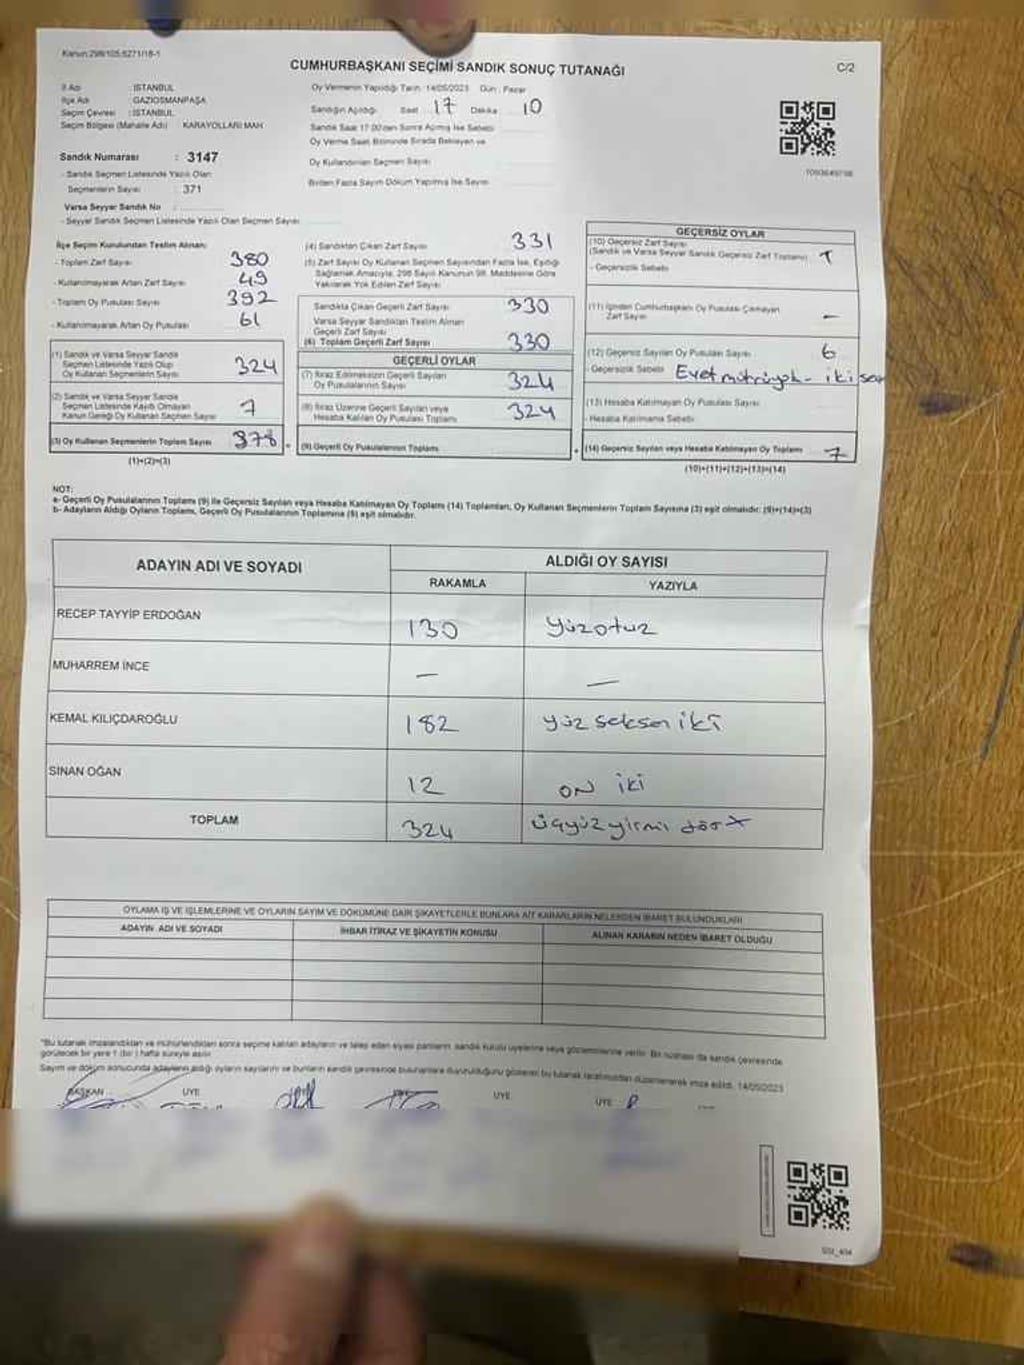 Kanun:298/105.6271/18-1
CUMHURBAŞKANI SEÇİMİ SANDIK SONUÇ TUTANAĞI
C/2
İl Adı : İSTANBUL
İlçe Adı : GAZİOSMANPAŞA
Seçim Çevresi : İSTANBUL
Seçim Bölgesi (Mahalle Adı) KARAYOLLARI MAH
Sandık Numarası : 3147
- Sandık Seçmen Listesinde Yazılı Olan
Seçmenlerin Sayısı : 371
Varsa Seyyar Sandık No :
- Seyyar Sandık Seçmen Listesinde Yazılı Olan Seçmen Sayısı
Oy Vermenin Yapıldığı Tarih: 14/05/2023 Gün : Pazar
Sandığın Açıldığı Saat 17 Dakika 10
Sandık Saat 17.00'den Sonra Açılmış İse Sebebi
Oy Verme Saati Bitiminde Sırada Bekleyen ve
Oy Kullandırılan Seçmen Sayısı
Birden Fazla Sayım Döküm Yapılmış İse Sayısı
İlçe Seçim Kurulundan Teslim Alınan:
- Toplam Zarf Sayısı 380
- Kullanılmayarak Artan Zarf Sayısı 49
- Toplam Oy Pusulası Sayısı 392
- Kullanılmayarak Artan Oy Pusulası 61
(1) Sandık ve Varsa Seyyar Sandık
Seçmen Listesinde Yazılı Olup
Oy Kullanan Seçmenlerin Sayısı 324
(2) Sandık ve Varsa Seyyar Sandık
Seçmen Listesinde Kayıtlı Olmayan
Kanun Gereği Oy Kullanan Seçmen Sayısı 7
(3) Oy Kullanan Seçmenlerin Toplam Sayısı
(1)+(2)=(3)
(4) Sandıktan Çıkan Zarf Sayısı 331
(5) Zarf Sayısı Oy Kullanan Seçmen Sayısından Fazla İse, Eşitliği
Sağlamak Amacıyla, 298 Sayılı Kanunun 98. Maddesine Göre
Yakılarak Yok Edilen Zarf Sayısı
Sandıkta Çıkan Geçerli Zarf Sayısı 330
Varsa Seyyar Sandıktan Teslim Alınan
Geçerli Zarf Sayısı
(6) Toplam Geçerli Zarf Sayısı 330
GEÇERLİ OYLAR
(7) İtiraz Edilmeksizin Geçerli Sayılan
Oy Pusulalarının Sayısı 324
(8) İtiraz Üzerine Geçerli Sayılan veya
Hesaba Katılan Oy Pusulası Toplamı 324
(9) Geçerli Oy Pusulalarının Toplamı
GEÇERSİZ OYLAR
(10) Geçersiz Zarf Sayısı
(Sandık ve Varsa Seyyar Sandık Geçersiz Zarf Toplamı) 1
- Geçersizlik Sebebi
(11) İçinden Cumhurbaşkanı Oy Pusulası Çıkmayan
Zarf Sayısı –
(12) Geçersiz Sayılan Oy Pusulası Sayısı 6
- Geçersizlik Sebebi Evet mührüyok - iki
(13) Hesaba Katılmayan Oy Pusulası Sayısı
- Hesaba Katılmama Sebebi
(14) Geçersiz Sayılan veya Hesaba Katılmayan Oy Toplamı 7
(10)+(11)+(12)+(13)=(14)
NOT:
a- Geçerli Oy Pusulalarının Toplamı (9) ile Geçersiz Sayılan veya Hesaba Katılmayan Oy Toplamı (14) Toplamları, Oy Kullanan Seçmenlerin Toplam Sayısına (3) eşit olmalıdır. (9)+(14)=(3)
b- Adayların Aldığı Oyların Toplamı, Geçerli Oy Pusulalarının Toplamına (9) eşit olmalıdır.
ADAYIN ADI VE SOYADI
ALDIĞI OY SAYISI
RAKAMLA YAZIYLA
RECEP TAYYİP ERDOĞAN 130 yüzotuz
MUHARREM İNCE – –
KEMAL KILIÇDAROĞLU 182 yüz seksen iki
SİNAN OĞAN 12 on iki
TOPLAM 324 üçyüzyirmi dört
OYLAMA İŞ VE İŞLEMLERİNE VE OYLARIN SAYIM VE DÖKÜMÜNE DAİR ŞİKAYETLERLE BUNLARA AİT KARARLARIN NELERDEN İBARET BULUNDUKLARI
ADAYIN ADI VE SOYADI İHBAR İTİRAZ VE ŞİKAYETİN KONUSU ALINAN KARARIN NEDEN İBARET OLDUĞU
*Bu tutanak imzalandıktan ve mühürlendikten sonra seçime katılan adayların ve talep eden siyasi partilerin, sandık kurulu üyelerine veya gözlemcilerine verilir. Bir nüshası da sandık çevresinde
görülecek bir yere 1 (bir) hafta süreyle asılır.
Sayım ve döküm sonucunda adayların aldığı oyların sayılarını ve bunların sandık çevresinde bulunanlara duyurulduğunu gösteren bu tutanak tarafımızdan düzenlenerek imza edildi. 14/05/2023
BAŞKAN ÜYE ÜYE ÜYE ÜYE